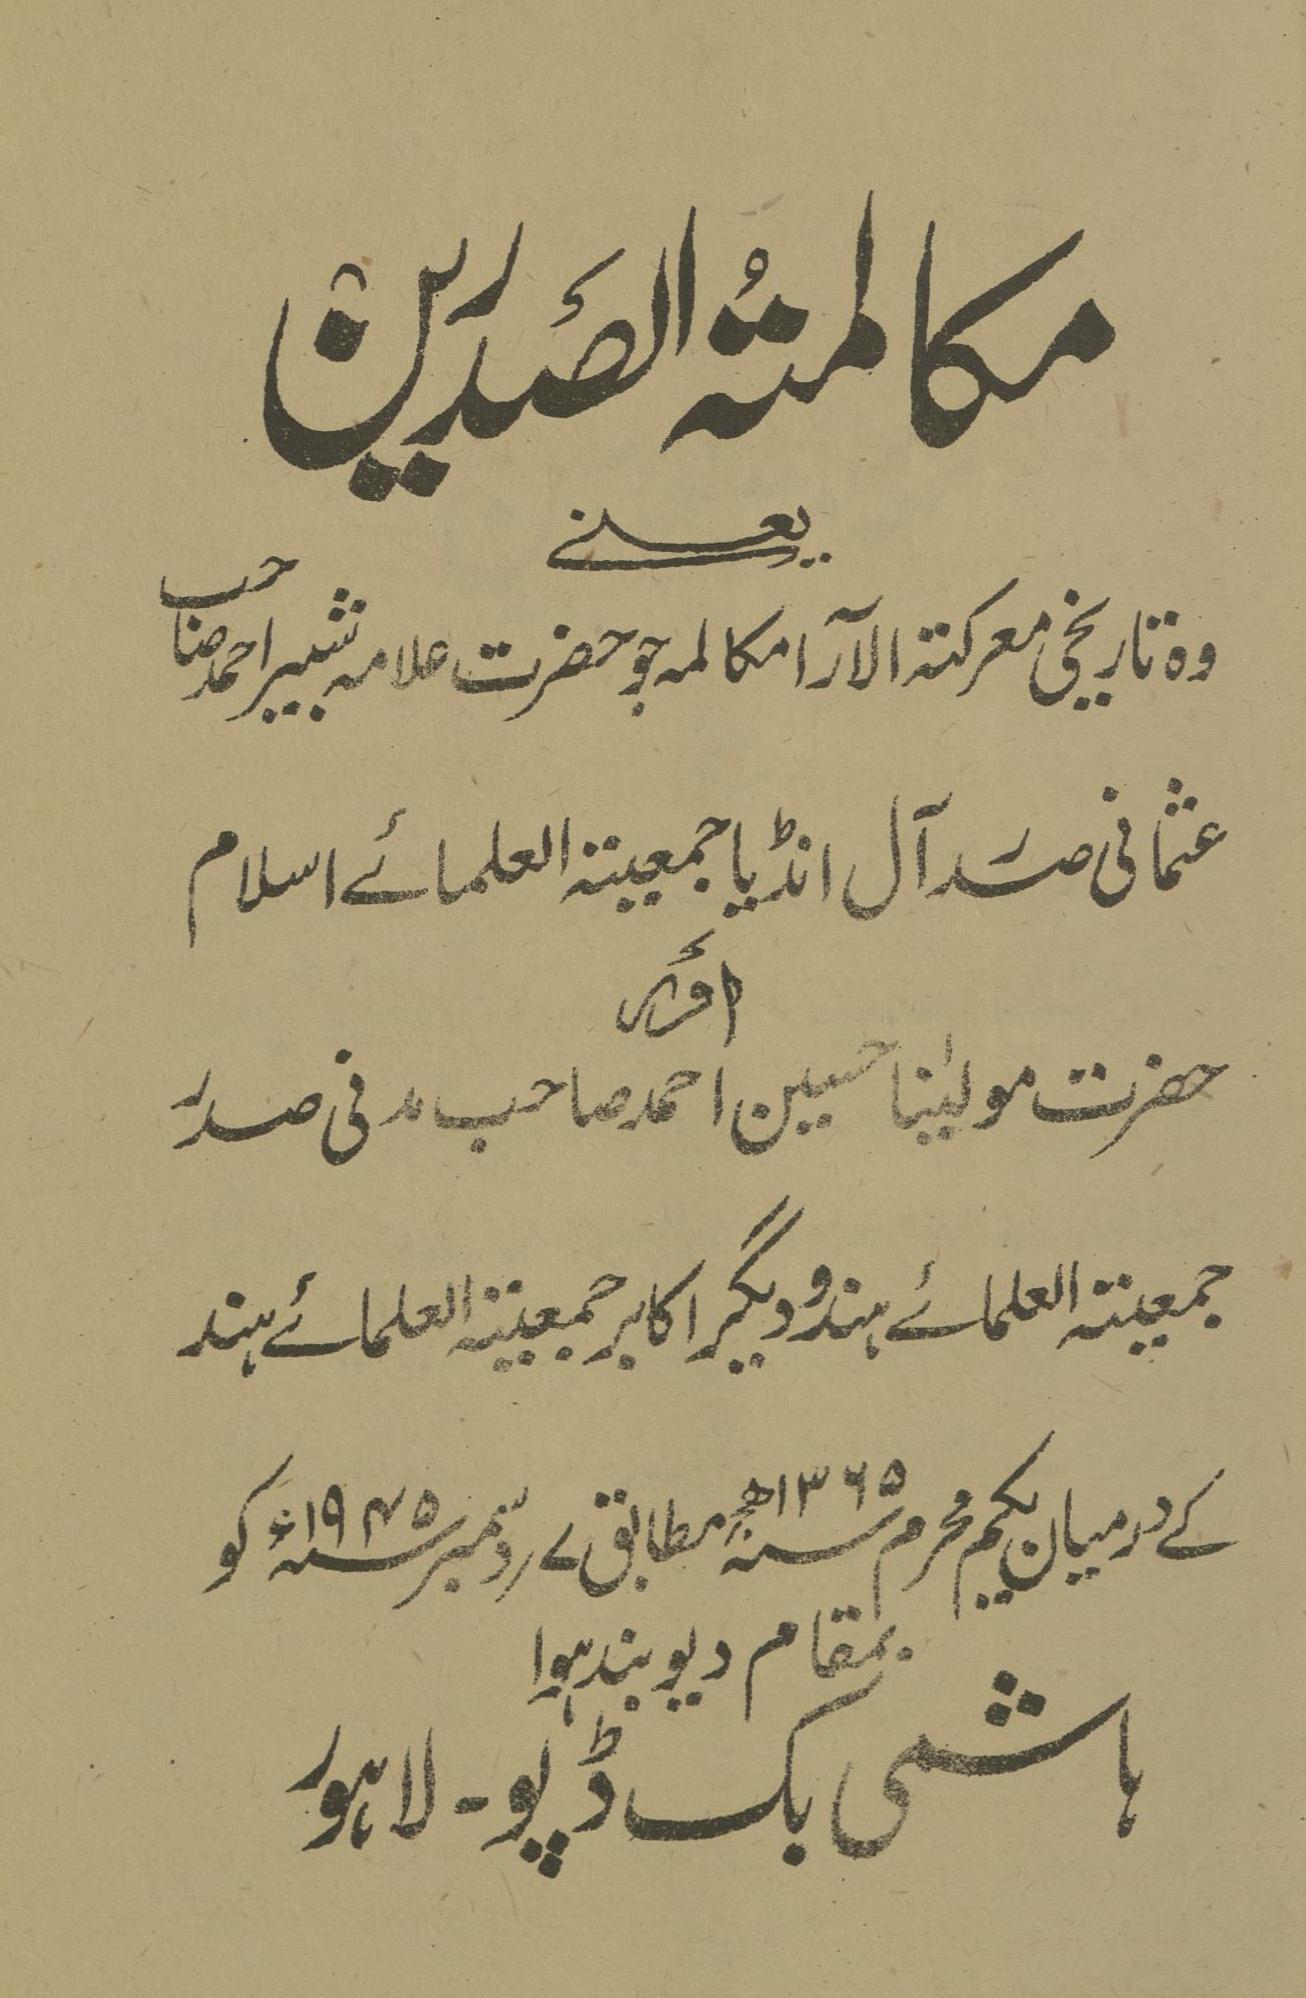 مکالمتہُ الصَّدرین
یعنے
وہ تاریخی معرکتہ الآرا مکالمہ جو حضرت علامہ شبیر احمد صاحب
عثمانی صدر آل انڈیا جمعیتہ العلمائے اسلام
اوَر
حضرت مولیٰنا حسین احمد صاحب مدنی صدر
جمعیتہ العلمائے ہند و دیگر اکابر جمعیتہ العلمائے ہند
کے درمیان یکم محرم سنہ ۱۳۶۵ھ مطابق ۷ دسمبر سنہ ۱۹۴۵ء کو
بمقام دیوبند ہوا
ہاشمی بک ڈپو - لاہور